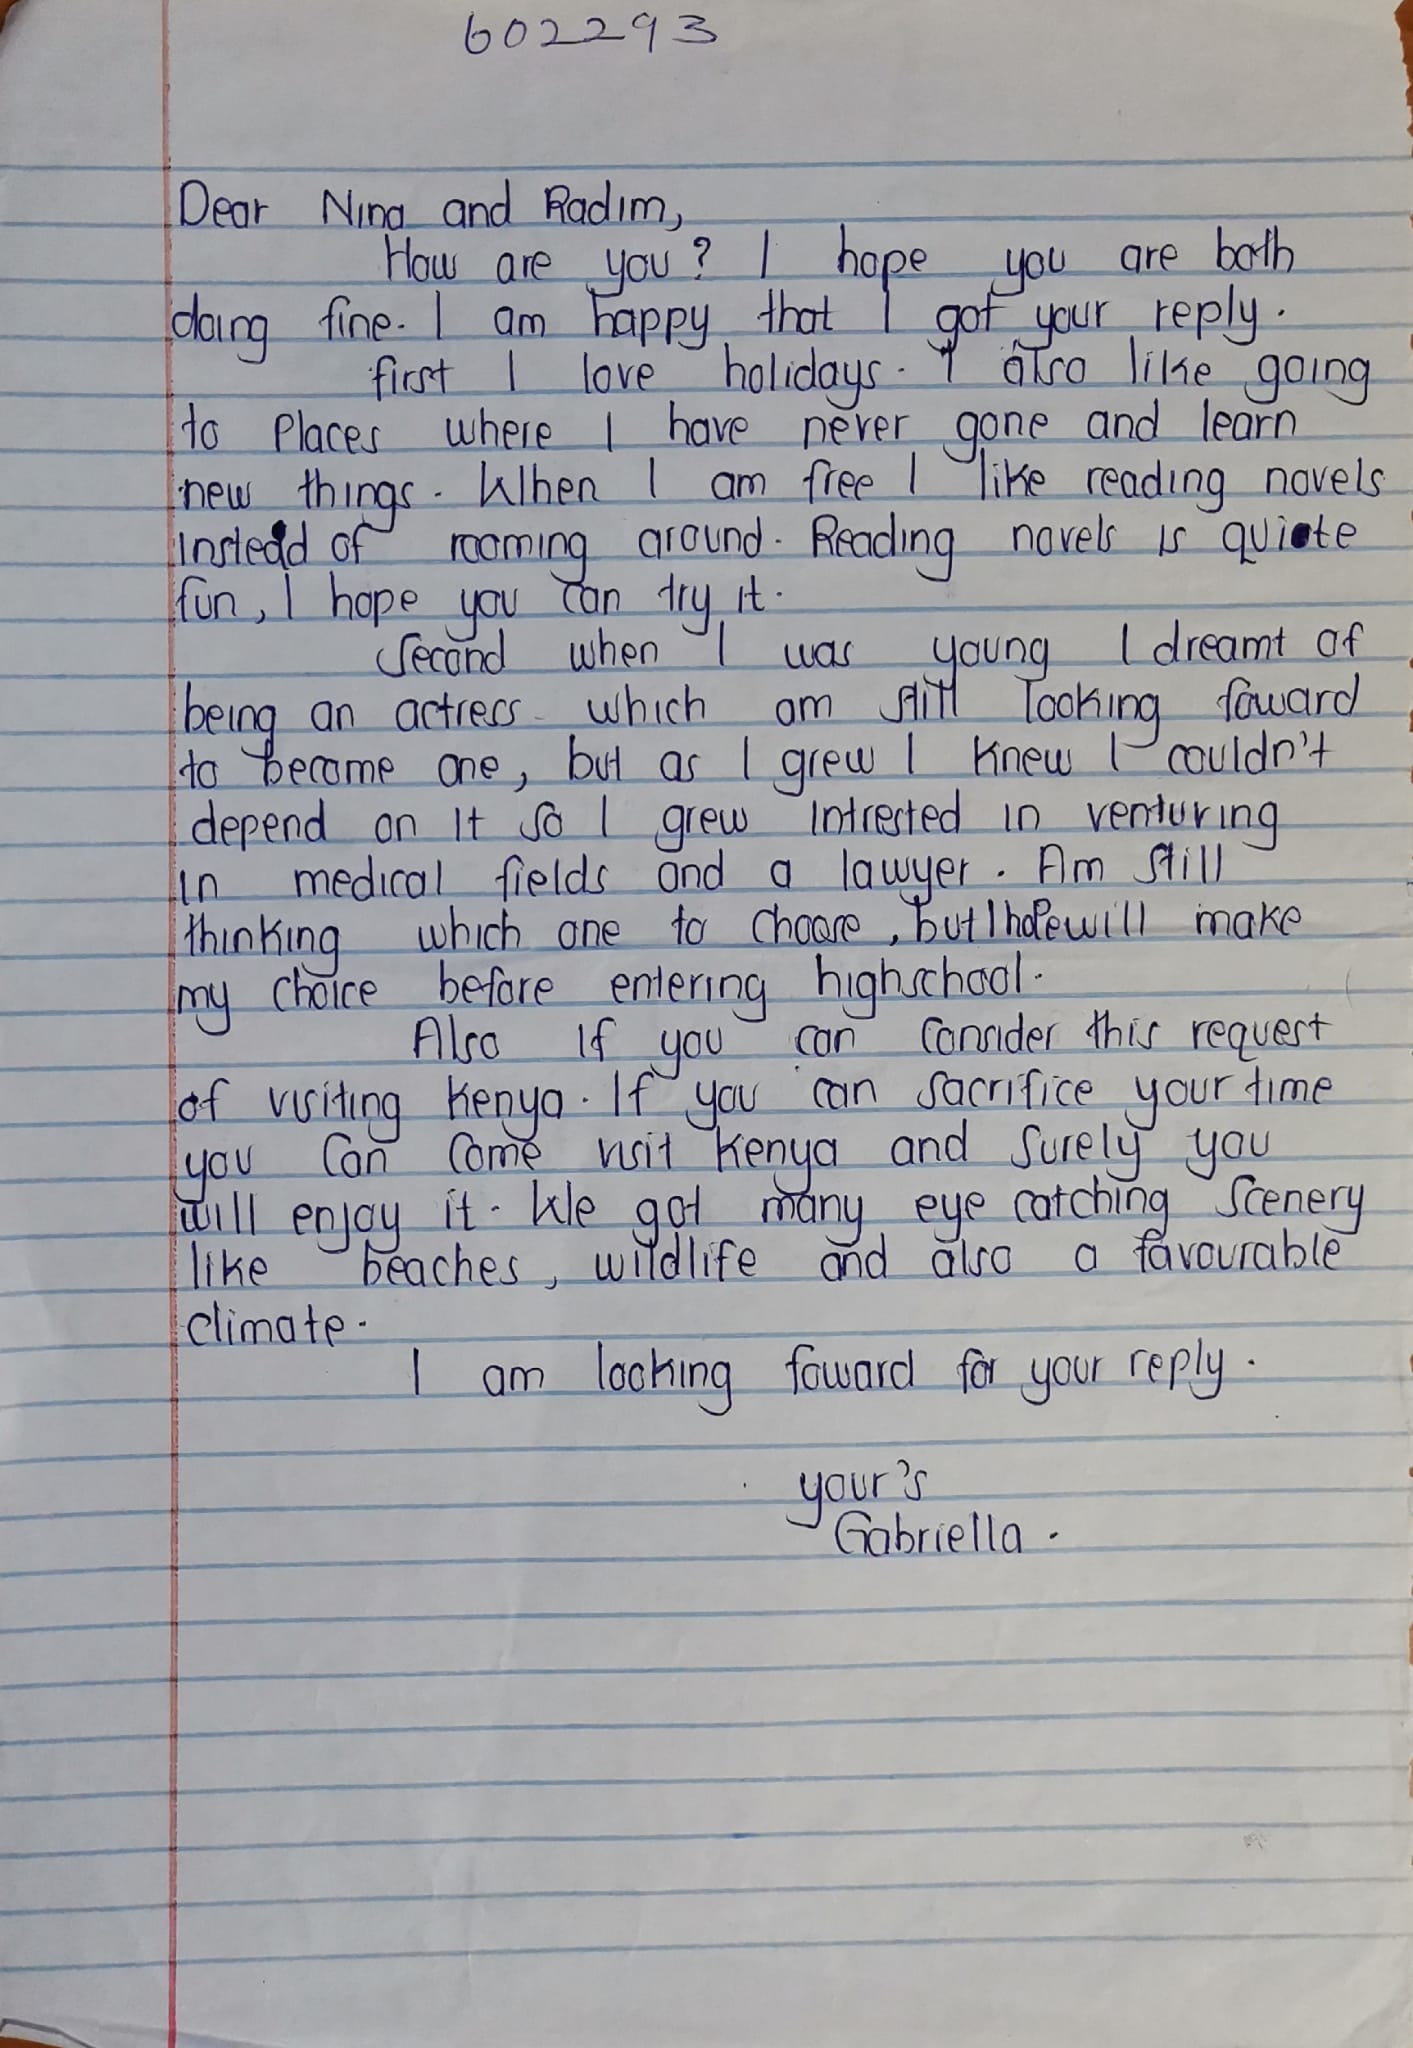 602293
Dear Nina and Radim,
How are you? I hope you are both
doing fine. I am happy that I got your reply.
first I love holidays. I also like going
to Places where I have never gone and learn
new things. When I am free I like reading novels
instead of roaming around. Reading novels is quiete
fun, I hope you can try it.
Second when I was young I dreamt of
being an actress which am still looking foward
to become one, but as I grew I knew I couldn't
depend on it so I grew intrested in venturing
in medical fields and a lawyer. Am still
thinking which one to choose, but I hope will make
my choice before entering highschool.
Also if you can consider this request
of visiting Kenya. If you can sacrifice your time
you can come visit Kenya and surely you
will enjoy it. We got many eye catching scenery
like beaches, wildlife and also a favourable
climate.
I am looking foward for your reply.
your's
Gabriella.